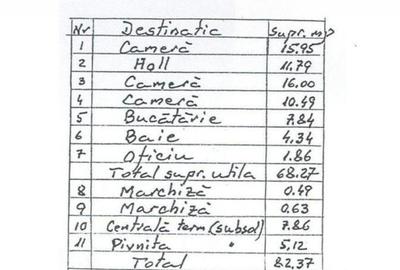 Nr Destinatia Supr. mp
1 Cameră 15.95
2 Holl 11.79
3 Cameră 16.00
4 Cameră 10.49
5 Bucătărie 7.84
6 Baie 4.34
7 Oficiu 1.86
Total supr. utila 68.27
8 Marchiză 0.49
9 Marchiză 0.63
10 Centrală term (subsol) 7.86
11 Pivnita " 5,12
Total 82,37